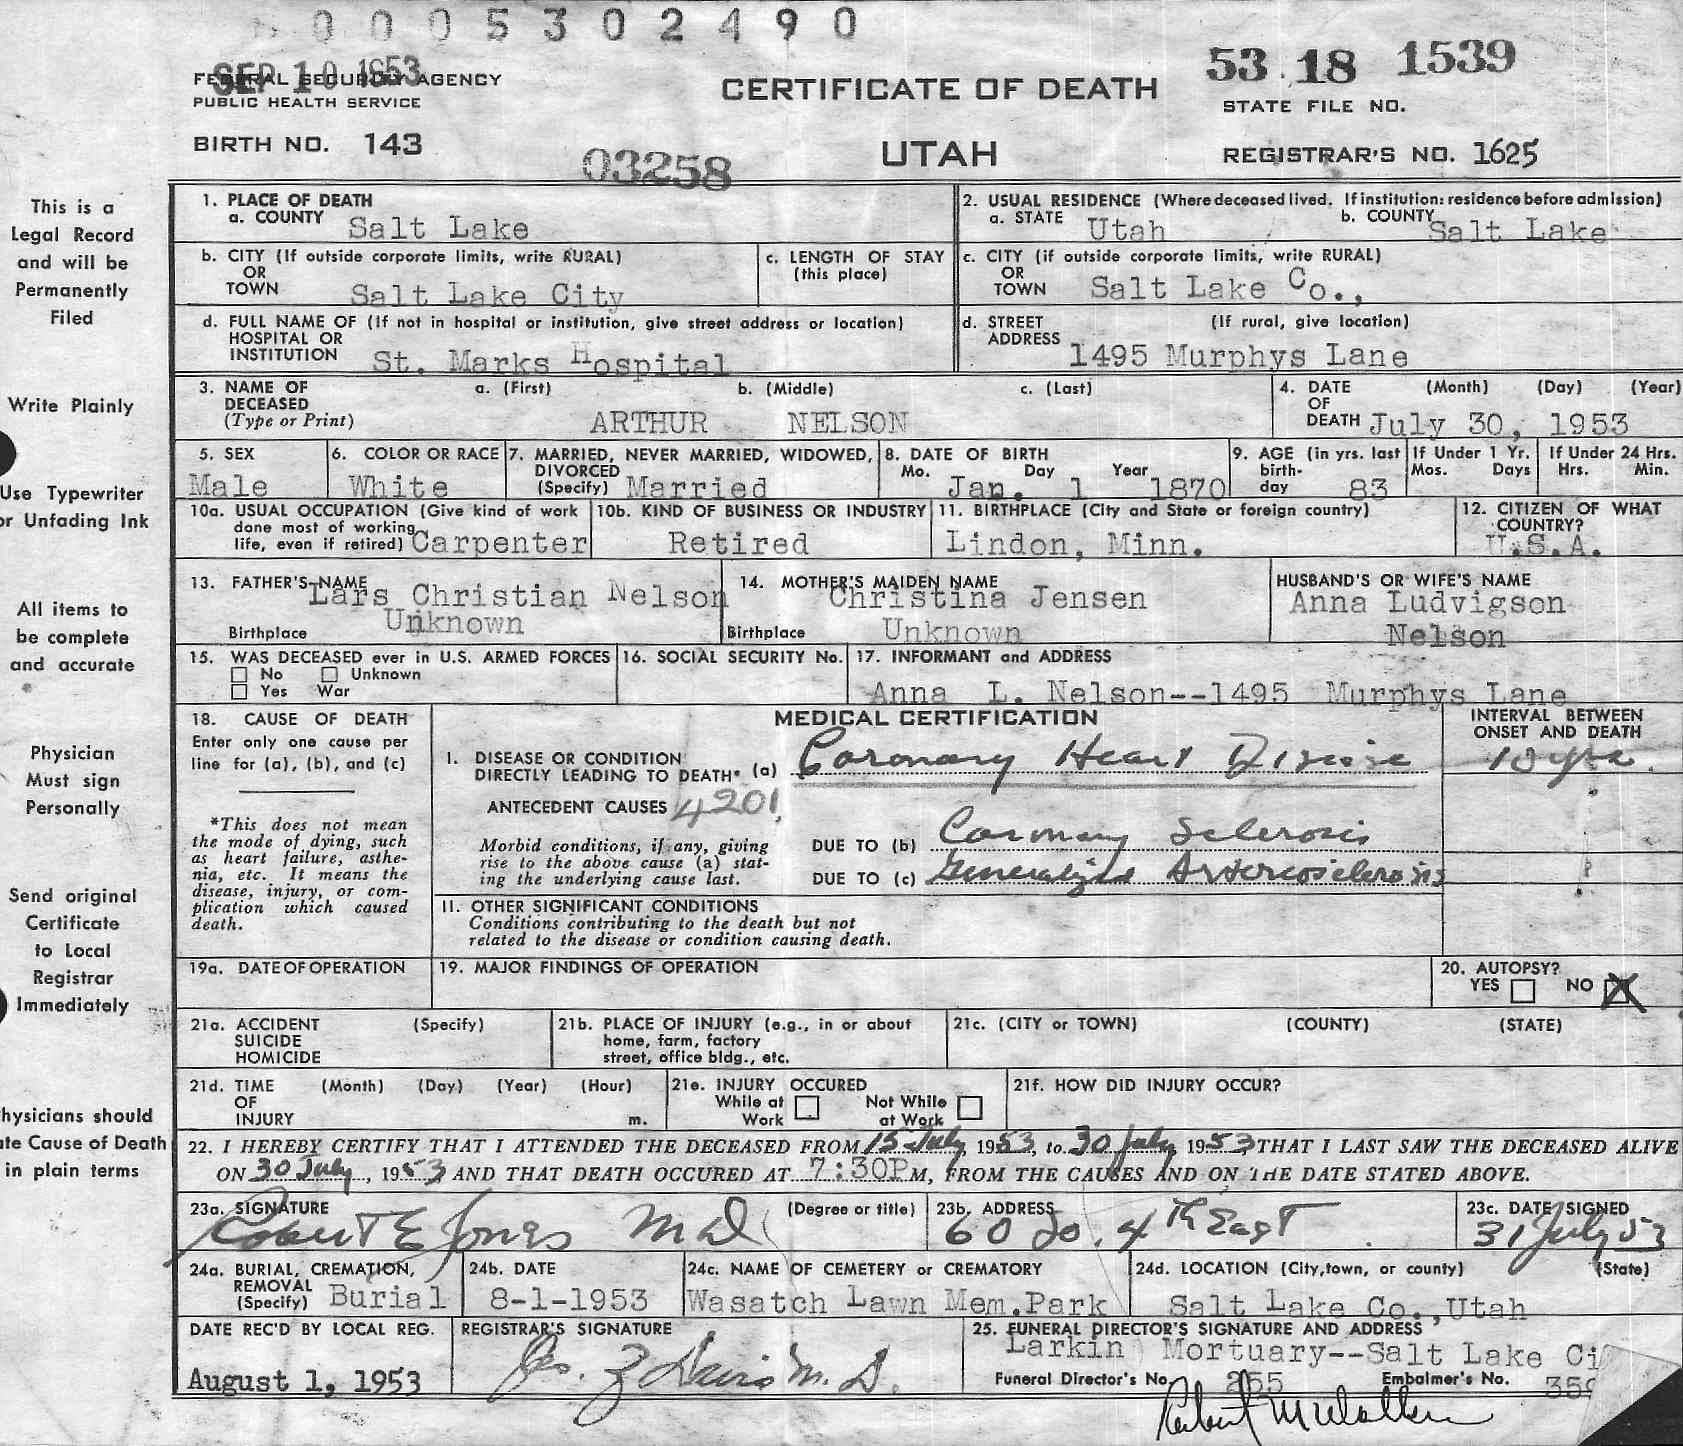 0005302490
SEP 10 1953
FEDERAL SECURITY AGENCY
PUBLIC HEALTH SERVICE
BIRTH NO. 143
03258
CERTIFICATE OF DEATH
UTAH
53 18 1539
STATE FILE NO.
REGISTRAR'S NO. 1625
This is a
Legal Record
and will be
Permanently
Filed
Write Plainly
Use Typewriter
or Unfading Ink
All items to
be complete
and accurate
Physician
Must sign
Personally
Send original
Certificate
to Local
Registrar
Immediately
hysicians should
te Cause of Death
in plain terms
1. PLACE OF DEATH
a. COUNTY Salt Lake
2. USUAL RESIDENCE (Where deceased lived. If institution: residence before admission)
a. STATE Utah b. COUNTY Salt Lake
b. CITY (If outside corporate limits, write RURAL)
OR
TOWN Salt Lake City
c. LENGTH OF STAY
(this place)
c. CITY (if outside corporate limits, write RURAL)
OR
TOWN Salt Lake Co.,
d. FULL NAME OF (If not in hospital or institution, give street address or location)
HOSPITAL OR
INSTITUTION St. Marks Hospital
d. STREET (If rural, give location)
ADDRESS 1495 Murphys Lane
3. NAME OF a. (First) b. (Middle) c. (Last)
DECEASED
(Type or Print) ARTHUR NELSON
4. DATE (Month) (Day) (Year)
OF
DEATH July 30, 1953
5. SEX
Male
6. COLOR OR RACE
White
7. MARRIED, NEVER MARRIED, WIDOWED,
DIVORCED
(Specify) Married
8. DATE OF BIRTH
Mo. Day Year
Jan. 1 1870
9. AGE (in yrs. last
birth-
day 83
If Under 1 Yr.
Mos. Days
If Under 24 Hrs.
Hrs. Min.
10a. USUAL OCCUPATION (Give kind of work
done most of working
life, even if retired) Carpenter
10b. KIND OF BUSINESS OR INDUSTRY
Retired
11. BIRTHPLACE (City and State or foreign country)
Lindon, Minn.
12. CITIZEN OF WHAT
COUNTRY?
U.S.A.
13. FATHER'S NAME
Lars Christian Nelson
Birthplace Unknown
14. MOTHER'S MAIDEN NAME
Christina Jensen
Birthplace Unknown
HUSBAND'S OR WIFE'S NAME
Anna Ludvigson
Nelson
15. WAS DECEASED ever in U.S. ARMED FORCES
No Unknown
Yes War
16. SOCIAL SECURITY No.
17. INFORMANT and ADDRESS
Anna L. Nelson--1495 Murphys Lane
18. CAUSE OF DEATH
Enter only one cause per
line for (a), (b), and (c)
*This does not mean
the mode of dying, such
as heart failure, asthe-
nia, etc. It means the
disease, injury, or com-
plication which caused
death.
MEDICAL CERTIFICATION
I. DISEASE OR CONDITION
DIRECTLY LEADING TO DEATH* (a) Coronary Heart Disease
ANTECEDENT CAUSES 4201
Morbid conditions, if any, giving
rise to the above cause (a) stat-
ing the underlying cause last.
DUE TO (b) Coronary Sclerosis
DUE TO (c) Generalized Arteriosclerosis
INTERVAL BETWEEN
ONSET AND DEATH
10 yrs.
?
II. OTHER SIGNIFICANT CONDITIONS
Conditions contributing to the death but not
related to the disease or condition causing death.
19a. DATE OF OPERATION
19. MAJOR FINDINGS OF OPERATION
20. AUTOPSY?
YES NO X
21a. ACCIDENT (Specify)
SUICIDE
HOMICIDE
21b. PLACE OF INJURY (e.g., in or about
home, farm, factory
street, office bldg., etc.
21c. (CITY or TOWN) (COUNTY) (STATE)
21d. TIME (Month) (Day) (Year) (Hour)
OF
INJURY m.
21e. INJURY OCCURED
While at Not While
Work at Work
21f. HOW DID INJURY OCCUR?
22. I HEREBY CERTIFY THAT I ATTENDED THE DECEASED FROM 15 July 1953, to 30 July 1953, THAT I LAST SAW THE DECEASED ALIVE
ON 30 July, 1953 AND THAT DEATH OCCURED AT 7:30P M, FROM THE CAUSES AND ON THE DATE STATED ABOVE.
23a. SIGNATURE (Degree or title)
Robert E Jones MD
23b. ADDRESS
60 So. 4th East
23c. DATE SIGNED
31 July 53
24a. BURIAL, CREMATION,
REMOVAL
(Specify) Burial
24b. DATE
8-1-1953
24c. NAME OF CEMETERY or CREMATORY
Wasatch Lawn Mem.Park
24d. LOCATION (City, town, or county) (State)
Salt Lake Co., Utah
DATE REC'D BY LOCAL REG.
August 1, 1953
REGISTRAR'S SIGNATURE
Geo. Z Davis M.D.
25. FUNERAL DIRECTOR'S SIGNATURE AND ADDRESS
Larkin Mortuary--Salt Lake Ci
Funeral Director's No. 255 Embalmer's No. 359